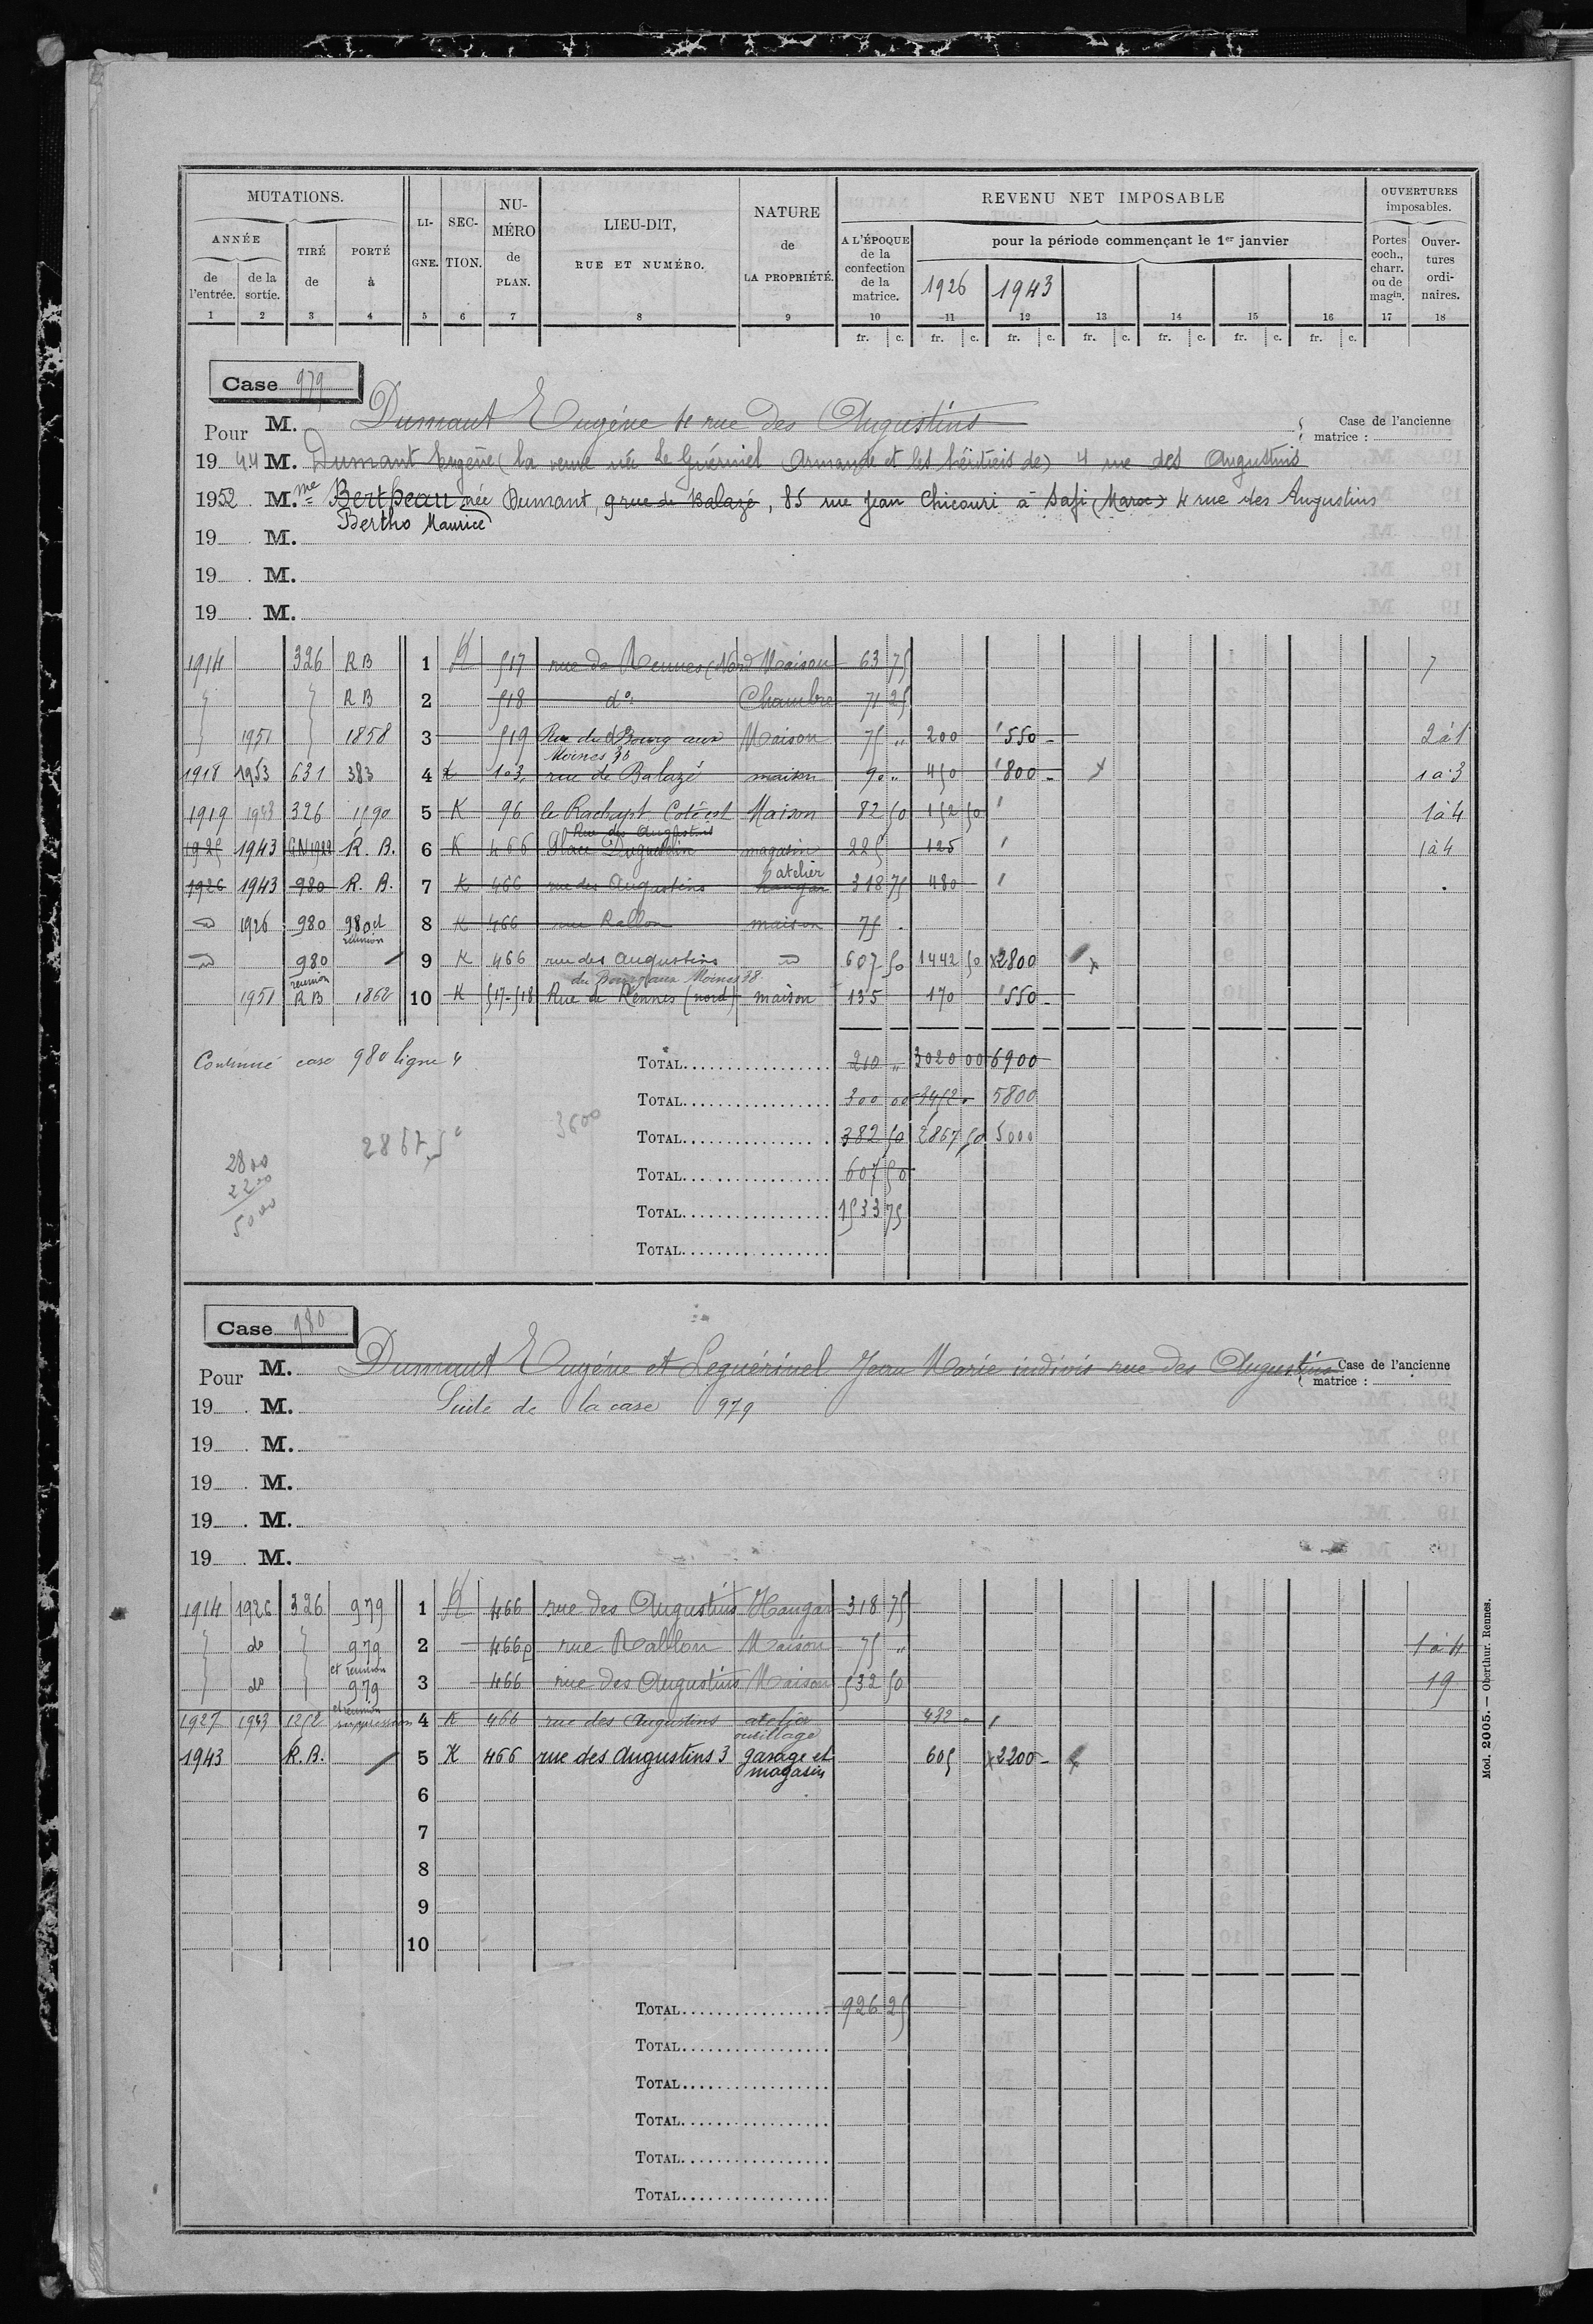 MUTATIONS.
ANNÉE
de l'entrée.
de la sortie.
TIRÉ de
PORTÉ à
LI-GNE.
SEC-TION.
NU-MÉRO de PLAN.
LIEU-DIT, RUE ET NUMÉRO.
NATURE de LA PROPRIÉTÉ.
REVENU NET IMPOSABLE
A L'ÉPOQUE de la confection de la matrice.
pour la période commençant le 1er janvier
1926 1943
OUVERTURES imposables.
Portes coch., charr. ou de magin.
Ouver-tures ordi-naires.
1 2 3 4 5 6 7 8 9 10 11 12 13 14 15 16 17 18
fr. c. fr. c. fr. c. fr. c. fr. c. fr. c. fr. c.
Case 979
Pour M. Dumant Eugéne 4 rue des Augustins
Case de l'ancienne matrice :
1944 M. Dumant Eugène (la veuve née Le Guérinel Armande et les héritiers de) 4 rue des Augustins
1952 M.me Bertheau née Dumant, 9 rue de Balazé, 85 rue Jean Chicouri à Safi (Maroc) 4 rue des Augustins
Bertho Maurice
19 M.
19 M.
19 M.
1914 326 RB 1 K 517 rue de Rennes (Nord Maison 63 75 7
RB 2 518 do Chambre 71 25
1951 1858 3 519 Rue du Bourg aux Moines 36 Maison 75 " 200 550 - 2 à 1
1918 1953 631 383 4 L 103 rue de Balazé maison 90 " 450 800 - 1 à 3
1919 1943 326 1590 5 K 96 le Rachapt Coté est Maison 82 50 152 50 1 à 4
Rue des Augustins
1925 1943 GN1922 R. B. 6 K 466 Place Duguesclin magasin 225 125 1 à 4
1926 1943 980 R. B. 7 K 466 rue des Augustins hangar atelier 318 75 480
do 1926 980 980 et réunion 8 K 466 rue Rallon maison 75
do 980 réunion 9 K 466 rue des Augustins do 607 50 1442 50 x2800 x
du Bourg aux Moines 38
1951 RB 1862 10 K 517-518 Rue de Rennes (nord) maison 135 170 550 -
Continué case 980 ligne 4
TOTAL 210 " 3020 00 6900
TOTAL 300 00 3452 " 5800
TOTAL 382 50 2867 50 5000
TOTAL 607 50
TOTAL 1533 75
TOTAL
2867,50
3600
2800
2200
5000
Case 980
Pour M. Dumant Eugéne et Leguérinel Jean Marie indivis rue des Augustins
Case de l'ancienne matrice :
19 M. Suite de la case 979
19 M.
19 M.
19 M.
19 M.
1914 1926 326 979 1 K 466 rue des Augustins Hangar 318 75
do 979 et réunion 2 466p rue Rallon Maison 75 " 1 à 4
do 979 et réunion 3 466 rue des Augustins Maison 532 50 19
1927 1943 1252 suppression 4 K 466 rue des Augustins atelier outillage 432 "
1943 R. B. 5 K 466 rue des Augustins 3 garage et magasin 605 x2200 - x
6
7
8
9
10
TOTAL 926 25
TOTAL
TOTAL
TOTAL
TOTAL
TOTAL
Mod. 2005. — Oberthur. Rennes.